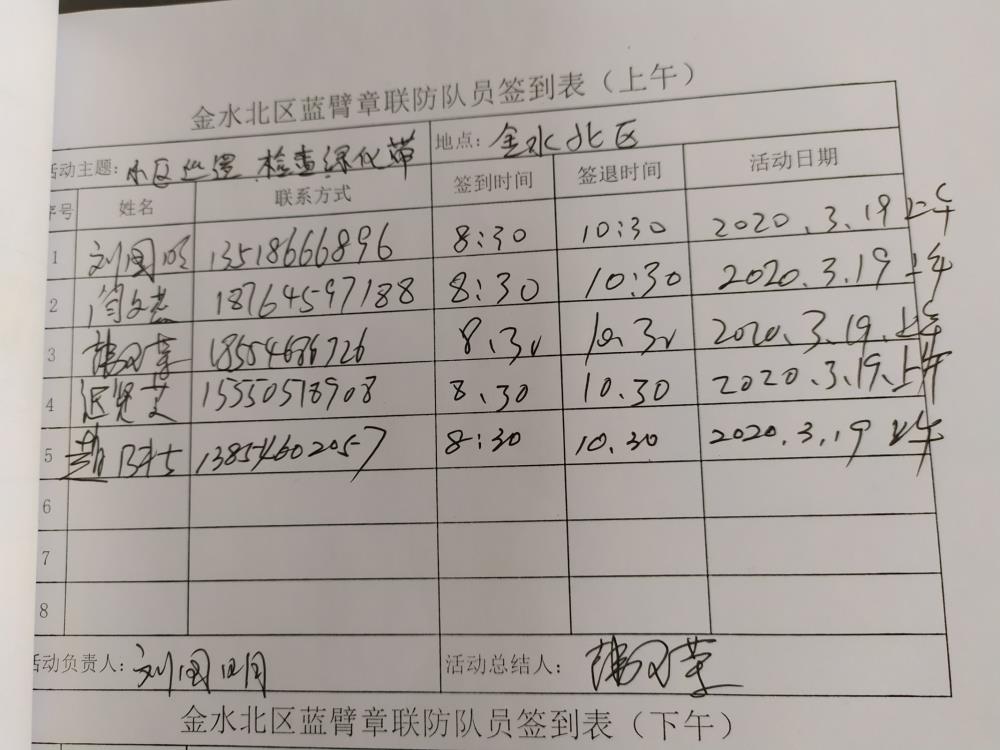 金水北区蓝臂章联防队员签到表（上午）
活动主题：小区巡逻 检查绿化带 地点：金水北区
序号 姓名 联系方式 签到时间 签退时间 活动日期
1 刘国明 13518666896 8:30 10:30 2020.3.19 上午
2 闫文忠 18764597188 8:30 10:30 2020.3.19 上午
3 18554686726 8.30 10.30 2020.3.19.上午
4 迟贤文 15550518908 8.30 10.30 2020.3.19.上午
5 13854602057 8:30 10.30 2020.3.19 上午
6
7
8
活动负责人：刘国明 活动总结人：
金水北区蓝臂章联防队员签到表（下午）